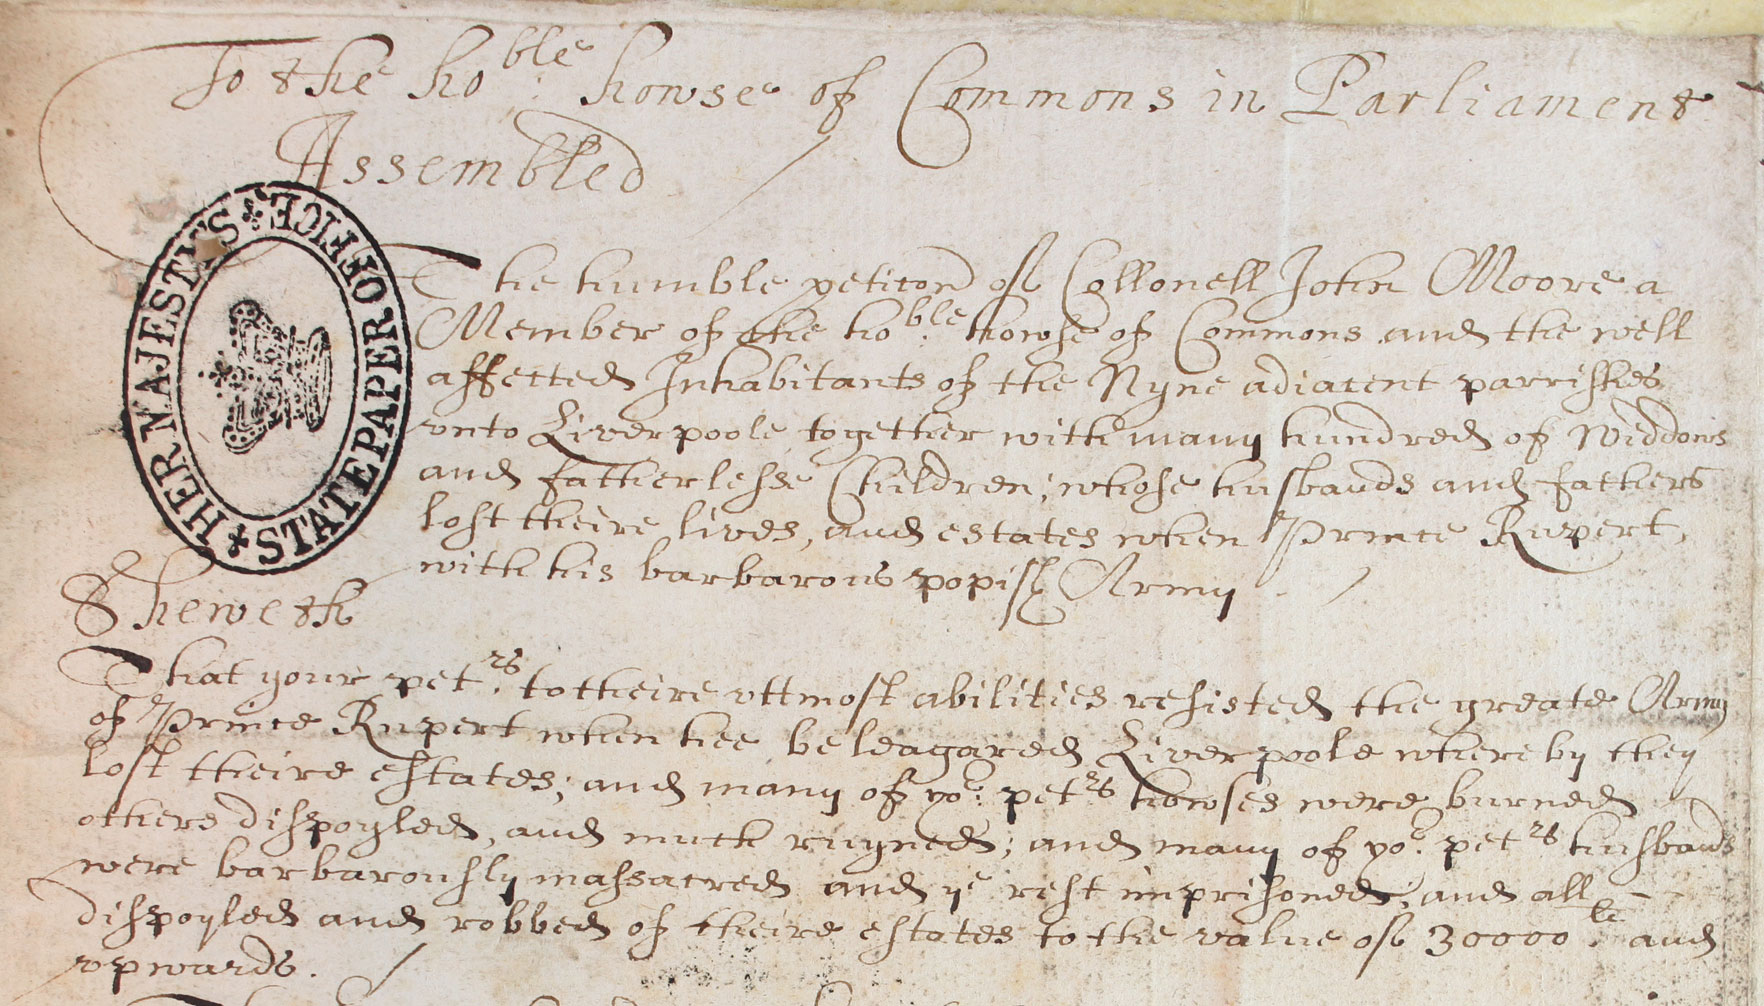 To the hoble: howse of Commons in Parliament
Assembled
The humble petiton of Collonell John Moore a
Member of the hoble: howse of Commons and the well
affected Inhabitants of the Nyne adiacent parrishes
vnto Liverpoole together with many hundred of Widdows
and fatherlesse Children; whose husbands and fathers
lost theire lives, and estates when Prince Rupert,
with his barbarous popish Army
HER MAJESTY'S STATE PAPER OFFICE
Sheweth
That your petrs. to theire vttmost abilities resisted the greate Army
of Prince Rupert when hee beleagared Liverpoole whereby they
lost theire estates; and many of yor: petrs howses were burned
others dispoyled, and much ruyned; and many of yor. petrs husbands
were barbarously massacred and ye rest imprisoned; and all
dispoyled and robbed of theire estates to the value of 30000 li. and
vpwards.